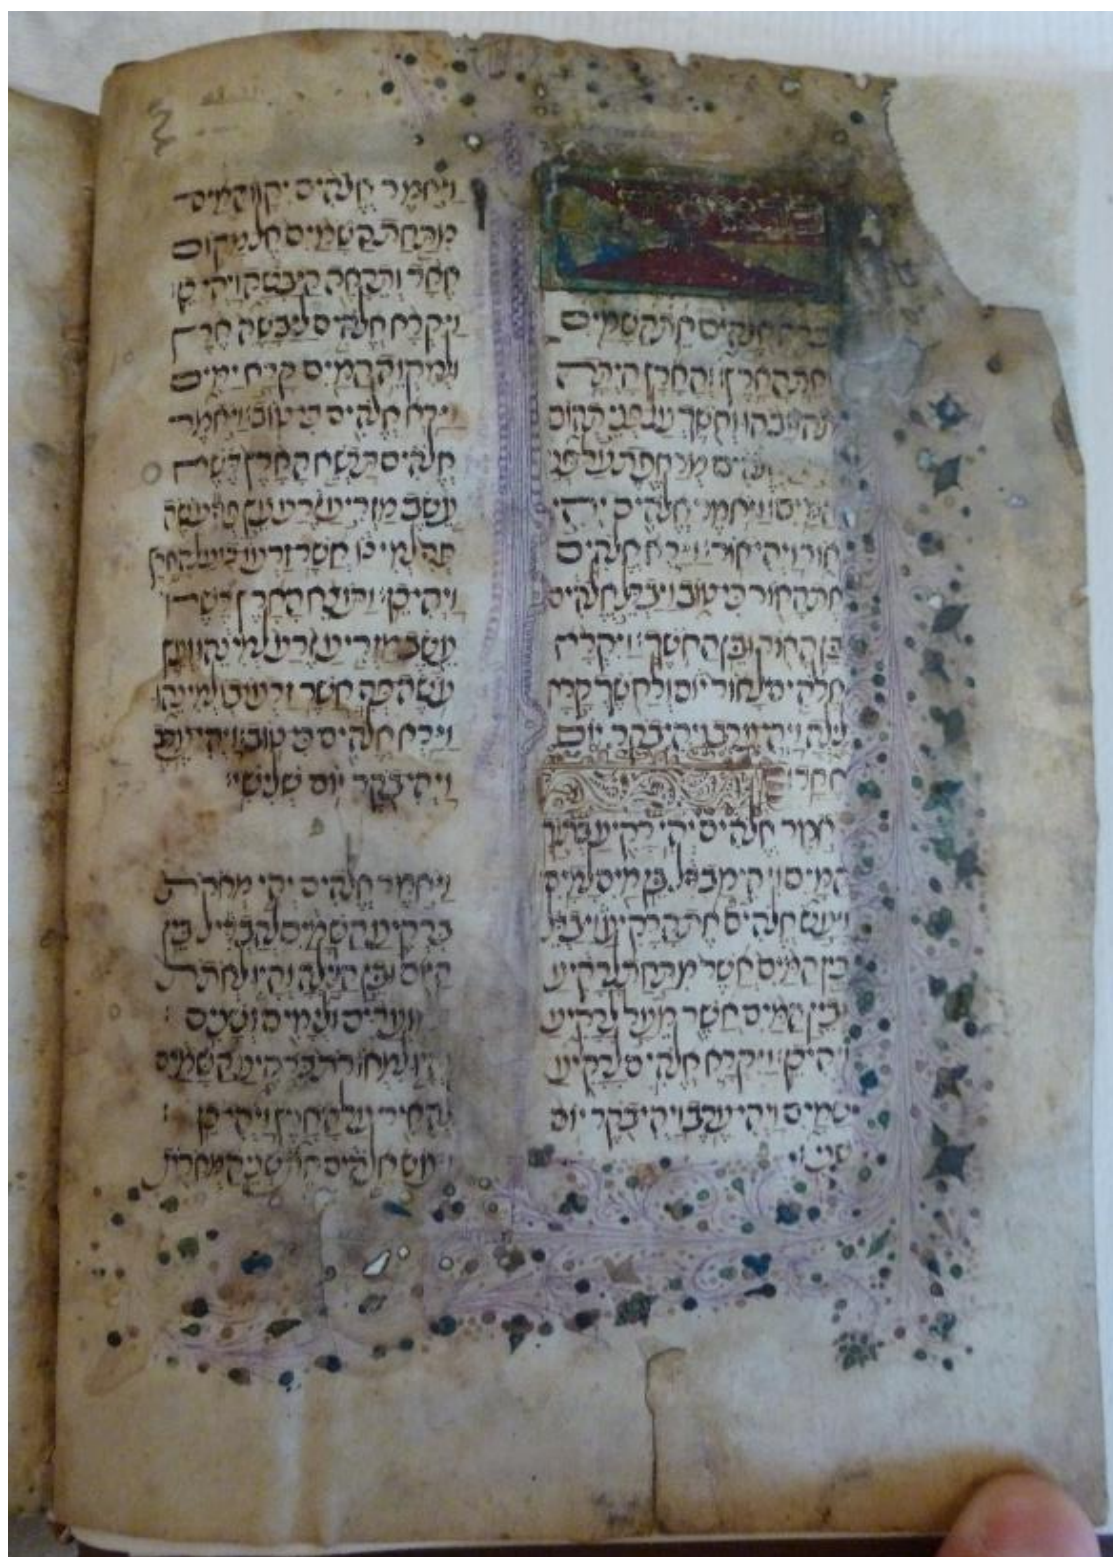 ברא אלהים את השמים
ואת הארץ והארץ היתה
תהו ובהו וחשך על פני תהום
אלהים מרחפת על פני
המים ויאמר אלהים יהי
אור ויהי אור וירא אלהים
את האור כי טוב ויבדל אלהים
בין האור ובין החשך ויקרא
אלהים לאור יום ולחשך קרא
לילה ויהי ערב ויהי בקר יום
אחד
ויאמר אלהים יהי רקיע בתוך
המים ויהי מבדיל בין מים למים
ויעש אלהים את הרקיע ויבדל
בין המים אשר מתחת לרקיע
ובין המים אשר מעל לרקיע
ויהי כן ויקרא אלהים לרקיע
שמים ויהי ערב ויהי בקר יום
שני
ויאמר אלהים יקוו המים
מתחת השמים אל מקום
אחד ותראה היבשה ויהי כן
ויקרא אלהים ליבשה ארץ
ולמקוה המים קרא ימים
וירא אלהים כי טוב ויאמר
אלהים תדשא הארץ דשא
עשב מזריע זרע עץ פרי עשה
פרי למינו אשר זרעו בו על הארץ
ויהי כן ותוצא הארץ דשא
עשב מזריע זרע למינהו ועץ
עשה פרי אשר זרעו בו למינהו
וירא אלהים כי טוב ויהי ערב
ויהי בקר יום שלישי
ויאמר אלהים יהי מארת
ברקיע השמים להבדיל בין
היום ובין הלילה והיו לאתת
ולמועדים ולימים ושנים
והיו למאורת ברקיע השמים
להאיר על הארץ ויהי כן
ויעש אלהים את שני המארת